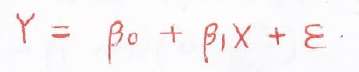 Y = β₀ + β₁X + ε.